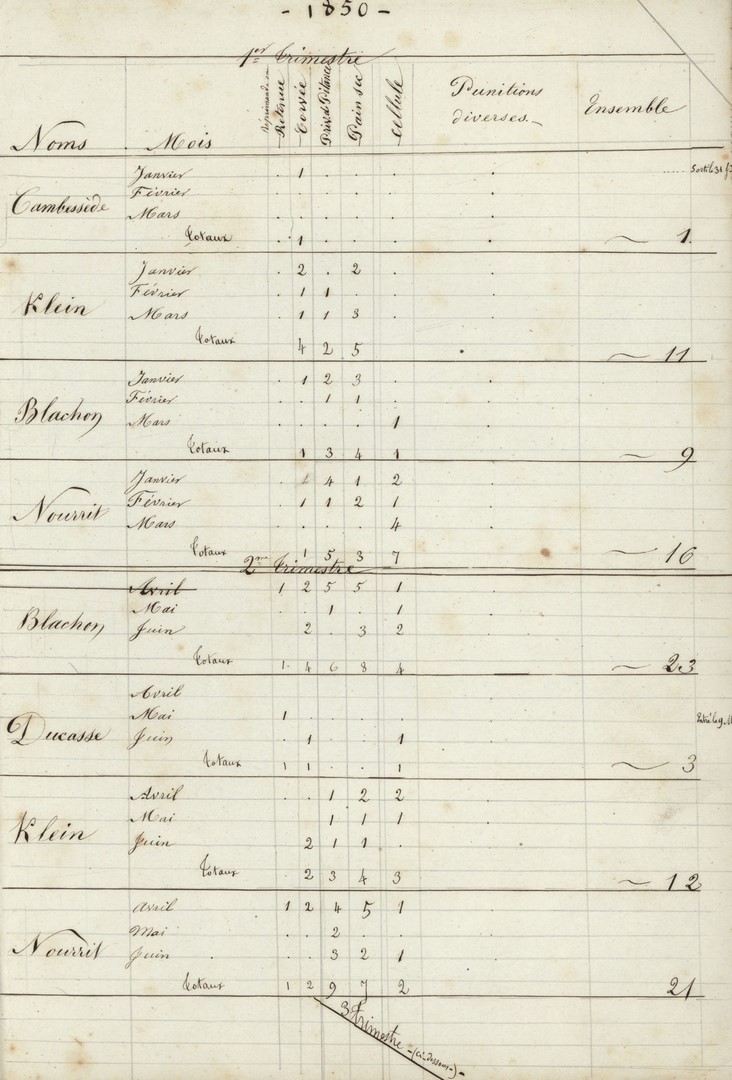 - 1850 -
1er Trimestre
Noms Mois Réprimande ou Retenue Corvée Priv. de Pitance Pain sec Cellule Punitions diverses Ensemble
Cambessède
Janvier . 1 . . . . ..... Sorti le 31
Février . . . . . .
Mars . . . . . .
Totaux . 1 . . . . 1
Klein
Janvier . 2 . 2 . .
Février . 1 1 . . .
Mars . 1 1 3 . .
Totaux 4 2 5 . 11
Blachon
Janvier . 1 2 3 . .
Février . . 1 1 .
Mars . . . . 1
Totaux . 1 3 4 1 9
Nourrit
Janvier . 1 4 1 2
Février . 1 1 2 1
Mars . . . . 4
Totaux 1 5 3 7 16
2me Trimestre
Blachon
Avril 1 2 5 5 1
Mai . . 1 . 1
Juin 2 . 3 2
Totaux 1 4 6 8 4 23
Ducasse
Avril
Mai 1 . . . .
Juin . 1 . . 1
Totaux 1 1 . . 1 3
Klein
Avril . . 1 2 2
Mai 1 1 1
Juin 2 1 1 .
Totaux 2 3 4 3 12
Nourrit
Avril 1 2 4 5 1
Mai . . 2 . .
Juin . . 3 2 1
Totaux 1 2 9 7 2 21
3e Trimestre - (ci-dessous -) -